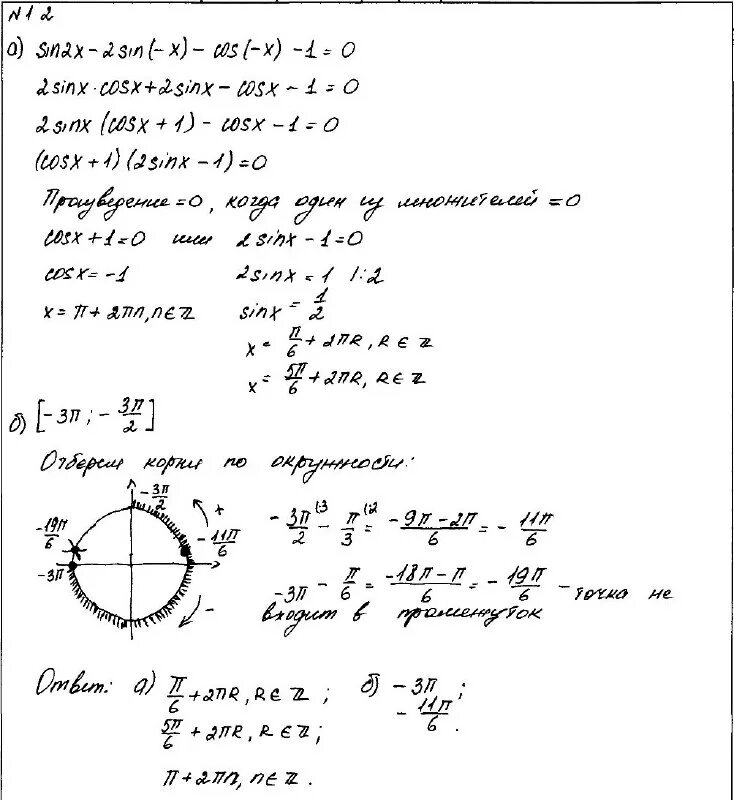 №12
а) sin2x - 2sin(-x) - cos(-x) - 1 = 0
2sinx·cosx + 2sinx - cosx - 1 = 0
2sinx (cosx + 1) - cosx - 1 = 0
(cosx + 1)(2sinx - 1) = 0
Произведение = 0, когда один из множителей = 0
cosx + 1 = 0 или 2sinx - 1 = 0
cosx = -1 2sinx = 1 |:2
x = π + 2πn, n ∈ ℤ sinx = 1/2
x = π/6 + 2πk, k ∈ ℤ
x = 5π/6 + 2πk, k ∈ ℤ
б) [-3π; -3π/2]
Отберем корни по окружности:
-3π/2
+
-19π/6
-11π/6
-3π
-
-3π/2 |·3 - π/3 |·2 = (-9π - 2π)/6 = -11π/6
-3π - π/6 = (-18π - π)/6 = -19π/6 - точка не
входит в промежуток
Ответ: а) π/6 + 2πk, k ∈ ℤ; б) -3π;
5π/6 + 2πk, k ∈ ℤ; -11π/6.
π + 2πn, n ∈ ℤ.